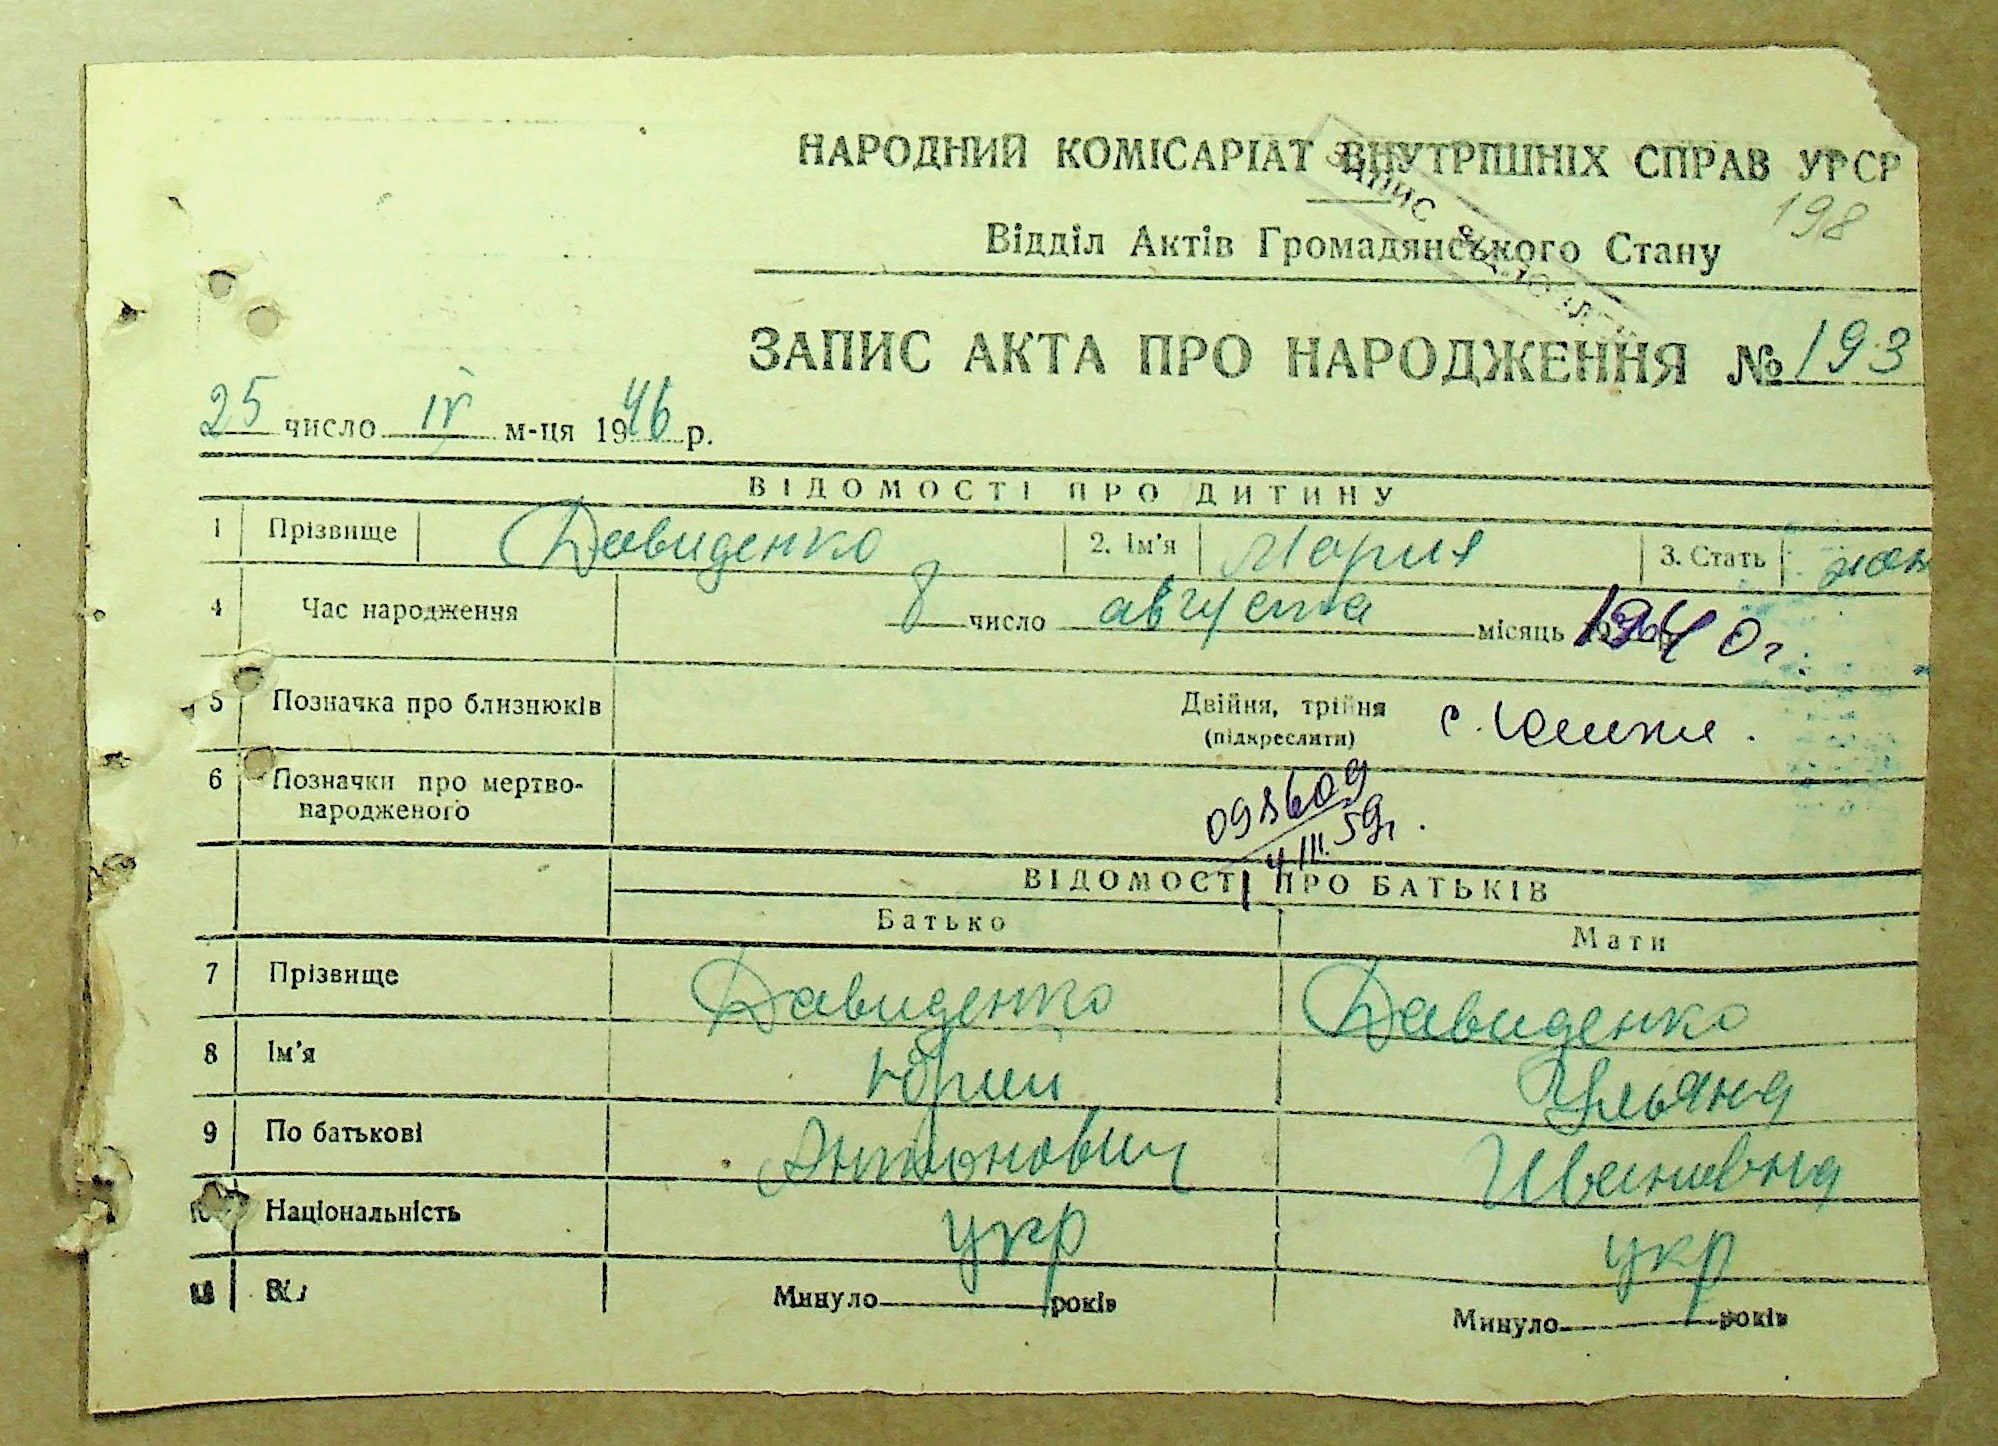 НАРОДНИЙ КОМІСАРІАТ ВНУТРІШНІХ СПРАВ УРСР
ЗАПИС
198
Відділ Актів Громадянського Стану
ЗАПИС АКТА ПРО НАРОДЖЕННЯ № 193
25 число IV м-ця 1946 р.
ВІДОМОСТІ ПРО ДИТИНУ
1 Прізвище Давиденко 2. Ім'я Мария 3. Стать жен
4 Час народження 8 число августа місяць 1940 г.
5 Позначка про близнюків Двійня, трійня
(підкреслити)
6 Позначки про мертво-
народженого
098609
4/III.59г.
ВІДОМОСТІ ПРО БАТЬКІВ
Батько Мати
7 Прізвище Давиденко Давиденко
8 Ім'я Юрий Ульяна
9 По батькові Антонович Ивановна
10 Національність укр укр
11 Минуло років Минуло років